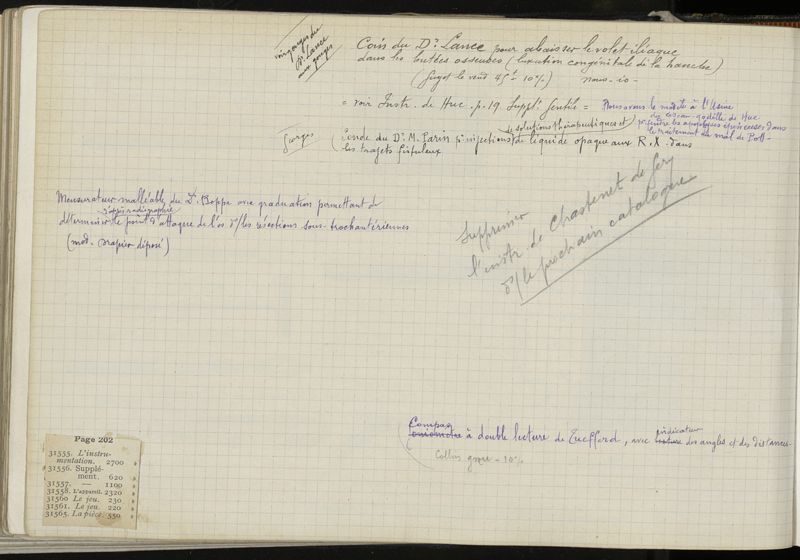 voir gouges du
Dr Lance
aux gouges
Coin du Dr Lance pour abaisser le volet iliaque
dans les butées osseuses (luxation congénitale de la hanche)
(Guyot le vend 45f - 10%) nous -
= voir Instr. de Huc. p. 19. Supplt Gentile = Nous avons le modèle à l'Usine
du
de Huc
dans
le traitement du mal de Pott -
de solutions thérapeutiques et
(Sonde du Dr M. Parin pr injections de liquide opaque aux R.X. dans
les trajets fistuleux
Mensurateur malléable du Dr Boppe avec graduation permettant de
d'après radiographie
déterminer le point d'attaque de l'os p/ les résections sous-trochantériennes
(mod. Drapier déposé)
Supprimer
l'instr. de Chastenet de Gery
p/ le prochain catalogue
Compas
à double lecture de Tuefferd, avec indicateur des angles et des distances
Collin gros - 10%
Page 202
31555. L'instru-
mentation. 2700 »
31556. Supplé-
ment. 620 »
31557. — 1100 »
31558. L'appareil. 2320 »
31560 Le jeu. 230 »
31561. Le jeu. 220 »
31565. La pièce. 550 »